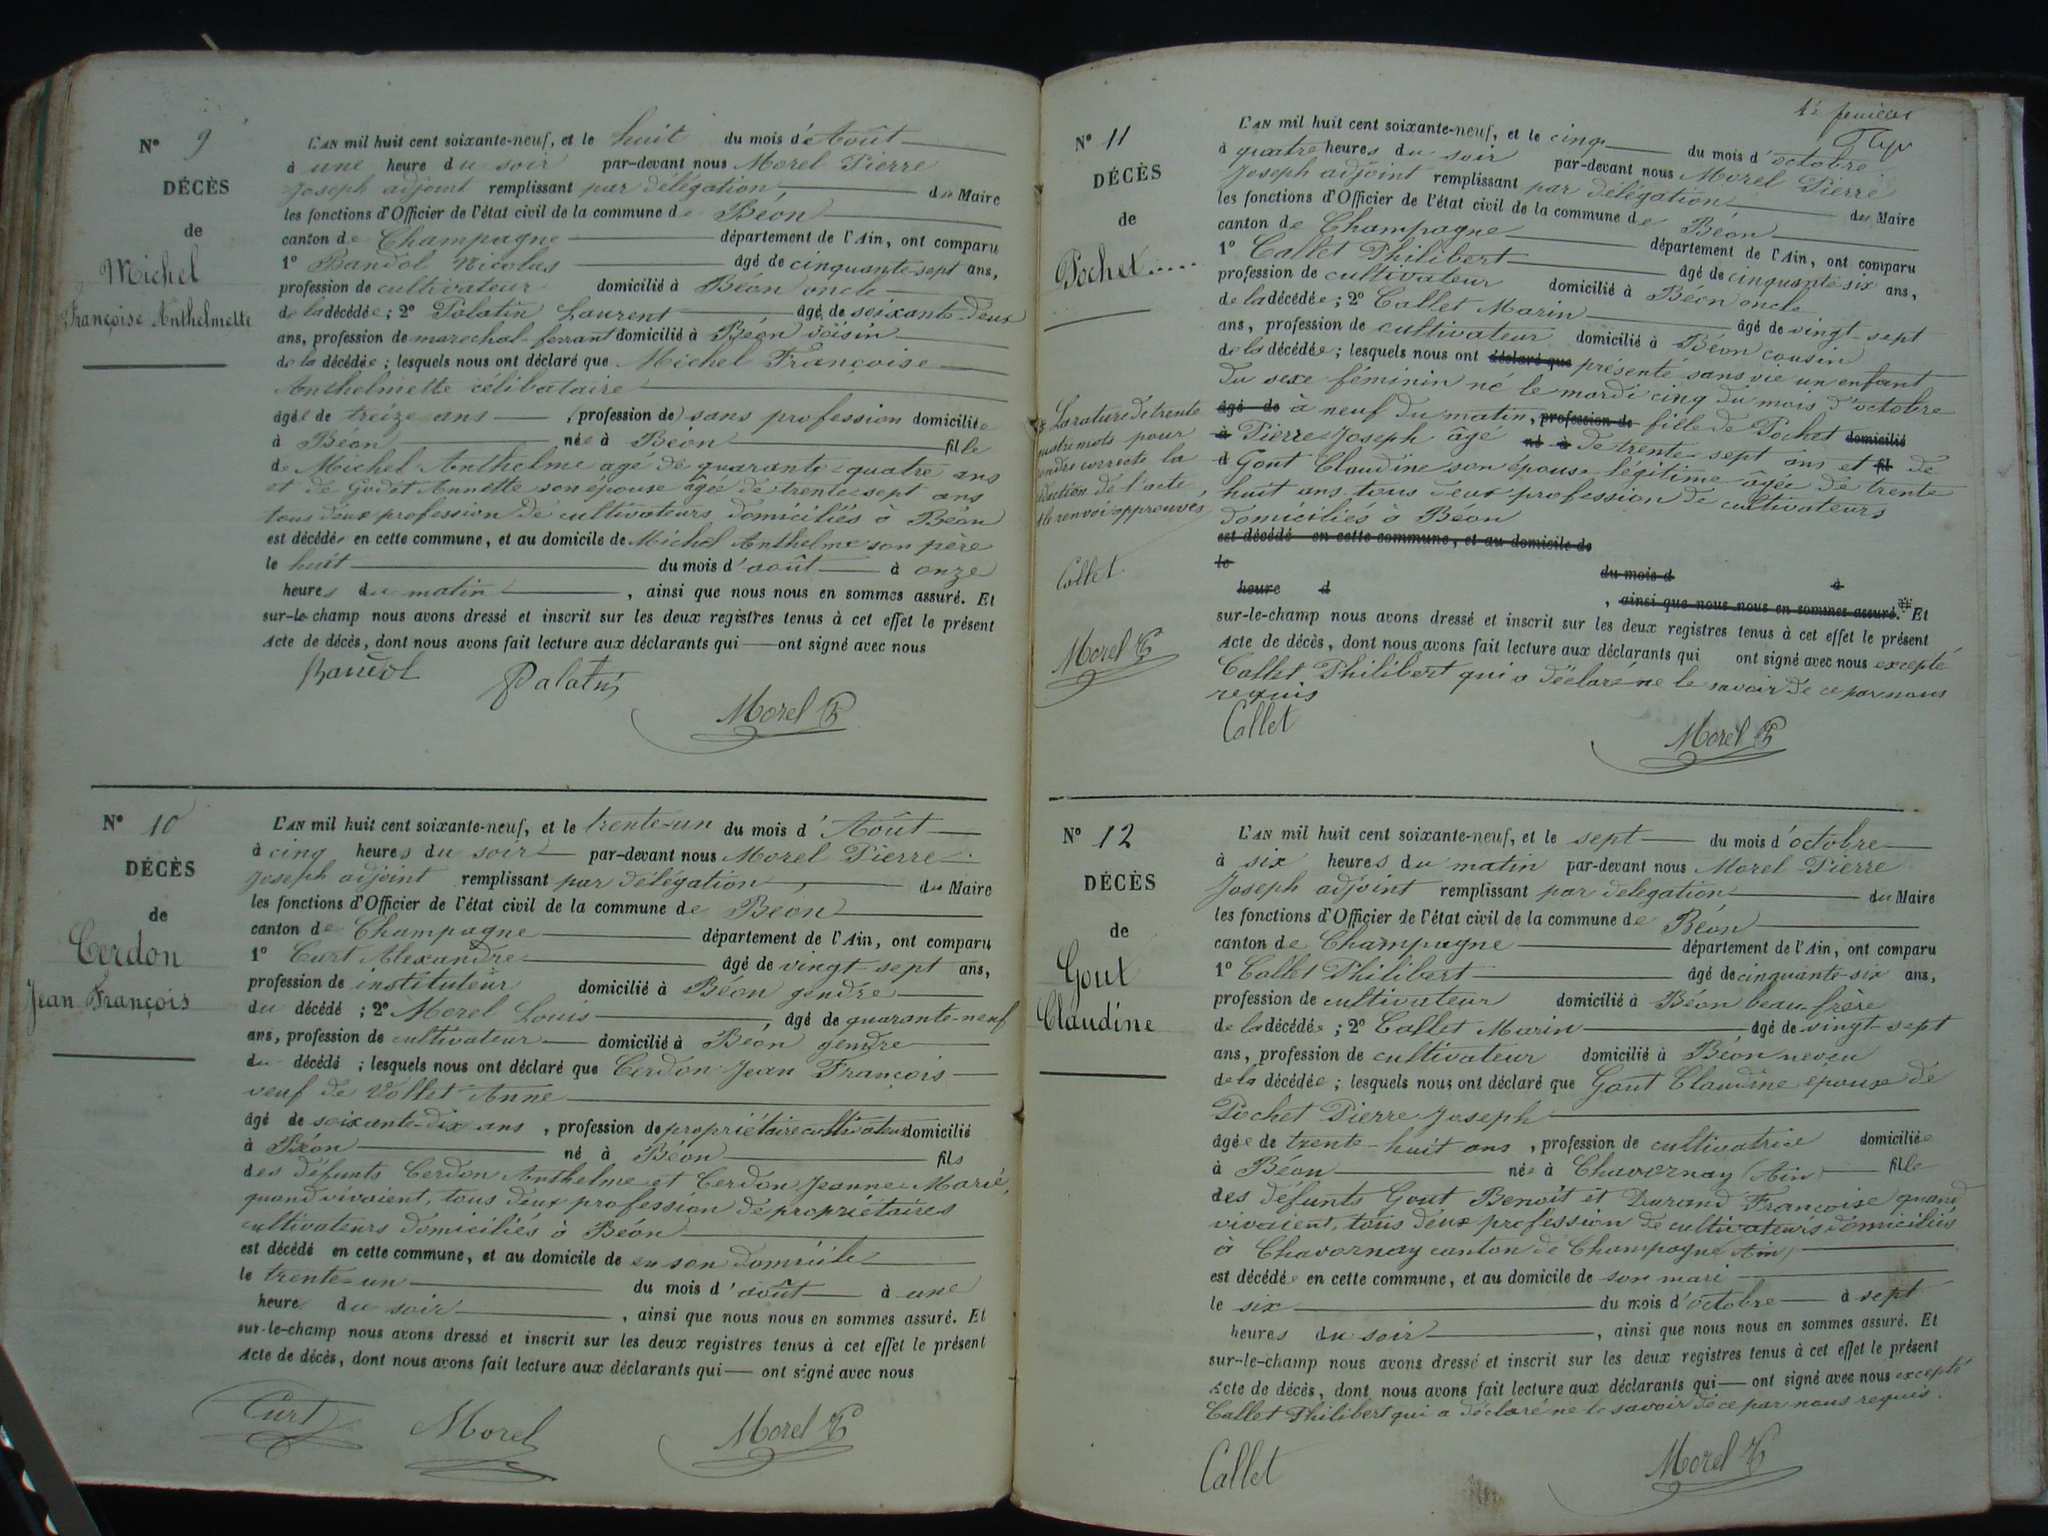 N° 9
DÉCÈS
de
Michel
Françoise Anthelmette
L'AN mil huit cent soixante-neuf, et le huit du mois d'Août
à une heure du soir par-devant nous Morel Pierre
Joseph adjoint remplissant par délégation du Maire
les fonctions d'Officier de l'état civil de la commune de Béon
canton de Champagne département de l'Ain, ont comparu
1° Bandol Nicolas âgé de cinquante-sept ans,
profession de cultivateur domicilié à Béon oncle
de la décédée ; 2° Palatin Laurent âgé de soixante-deux
ans, profession de marechal-ferrant domicilié à Béon voisin
de la décédée ; lesquels nous ont déclaré que Michel Françoise
Anthelmette célibataire
âgée de treize ans (profession de) sans profession domiciliée
à Béon née à Béon fille
de Michel Anthelme agé de quarante-quatre ans
et de Godet Annette son épouse âgée de trente-sept ans
tous deux profession de cultivateurs domiciliés à Béon
est décédée en cette commune, et au domicile de Michel Anthelme son père
le huit du mois d'août à onze
heures du matin , ainsi que nous nous en sommes assuré. Et
sur-le-champ nous avons dressé et inscrit sur les deux registres tenus à cet effet le présent
Acte de décès, dont nous avons fait lecture aux déclarants qui — ont signé avec nous
Palatin
Morel P
N° 10
DÉCÈS
de
Cerdon
Jean François
L'AN mil huit cent soixante-neuf, et le trente-un du mois d'Août
à cinq heures du soir par-devant nous Morel Pierre
Joseph adjoint remplissant par délégation du Maire
les fonctions d'Officier de l'état civil de la commune de Béon
canton de Champagne département de l'Ain, ont comparu
1° Curt Alexandre âgé de vingt-sept ans,
profession de instituteur domicilié à Béon gendre
du décédé ; 2° Morel Louis âgé de quarante-neuf
ans, profession de cultivateur domicilié à Béon gendre
du décédé ; lesquels nous ont déclaré que Cerdon Jean François
veuf de Vollet Anne
âgé de soixante-dix ans , profession de propriétaire cultivateur domicilié
à Béon né à Béon fils
des défunts Cerdon Anthelme et Cerdon Jeanne-Marie,
quand vivaient, tous deux profession de propriétaires
cultivateurs domiciliés à Béon
est décédé en cette commune, et au domicile de en son domicile
le trente-un du mois d'août à une
heure du soir , ainsi que nous nous en sommes assuré. Et
sur-le-champ nous avons dressé et inscrit sur les deux registres tenus à cet effet le présent
Acte de décès, dont nous avons fait lecture aux déclarants qui — ont signé avec nous
Curt Morel Morel P
N° 11
DÉCÈS
de
Pochet
L'AN mil huit cent soixante-neuf, et le cinq du mois d'octobre
à quatre heures du soir par-devant nous Morel Pierre
Joseph adjoint remplissant par délégation du Maire
les fonctions d'Officier de l'état civil de la commune de Béon
canton de Champagne département de l'Ain, ont comparu
1° Callet Philibert âgé de cinquante-six ans,
profession de cultivateur domicilié à Béon oncle
de la décédée ; 2° Callet Marin âgé de vingt-sept
ans, profession de cultivateur domicilié à Béon cousin
de la décédée ; lesquels nous ont déclaré que présenté sans vie un enfant
du sexe féminin né le mardi cinq du mois d'octobre
âgé de à neuf du matin, profession de fille de Pochet domicilié
à Pierre-Joseph âgé né à de trente-sept ans et fil de
d Gout Claudine son épouse légitime âgée de trente
huit ans tous deux profession de cultivateurs
domiciliés à Béon
est décédé en cette commune, et au domicile de
le du mois d à
heure d , ainsi que nous nous en sommes assuré. # Et
sur-le-champ nous avons dressé et inscrit sur les deux registres tenus à cet effet le présent
Acte de décès, dont nous avons fait lecture aux déclarants qui ont signé avec nous excepté
Callet Philibert qui a déclaré ne le savoir de ce par nous
requis
Callet Morel P
# La rature de trente
mots pour
rendre correcte la
rédaction de l'acte,
et le renvoi approuvés
Callet
Morel P
N° 12
DÉCÈS
de
Gout
Claudine
L'AN mil huit cent soixante-neuf, et le sept du mois d'octobre
à six heures du matin par-devant nous Morel Pierre
Joseph adjoint remplissant par délégation du Maire
les fonctions d'Officier de l'état civil de la commune de Béon
canton de Champagne département de l'Ain, ont comparu
1° Callet Philibert âgé de cinquante-six ans,
profession de cultivateur domicilié à Béon beau-frère
de la décédée ; 2° Callet Marin âgé de vingt-sept
ans, profession de cultivateur domicilié à Béon neveu
de la décédée ; lesquels nous ont déclaré que Gout Claudine épouse de
Pochet Pierre Joseph
âgée de trente-huit ans , profession de cultivatrice domiciliée
à Béon née à Chavornay (Ain) fille
des défunts Gout Benoit et Durand Françoise quand
vivaient, tous deux profession de cultivateurs domiciliés
à Chavornay canton de Champagne (Ain)
est décédée en cette commune, et au domicile de son mari
le six du mois d'octobre à sept
heures du soir , ainsi que nous nous en sommes assuré. Et
sur-le-champ nous avons dressé et inscrit sur les deux registres tenus à cet effet le présent
Acte de décès, dont nous avons fait lecture aux déclarants qui — ont signé avec nous excepté
Callet Philibert qui a déclaré ne le savoir de ce par nous requis.
Callet Morel P